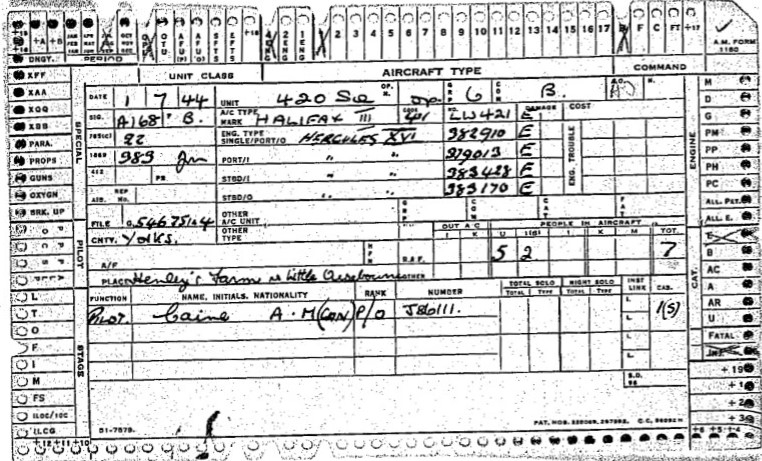 +A +B JAN FEB MAR APL MAY JUN OCT NOV DEC. OTU AFU (P) AFU (O) SFTS EFTS 2 ENG 1 ENG 2 3 4 5 6 7 8 9 10 11 12 13 14 15 16 17 F C FT +17
DNGY. PERIOD A.M. FORM 1180
XFF UNIT CLASS AIRCRAFT TYPE COMMAND
XAA DATE 1 7 44 UNIT 420 SQ OP. N. Op. GRP 6 COM B. A.O. N. M
XQQ SIG. A168 B. A/C TYPE MARK HALIFAX III CODE NO. LW421 E DAMAGE COST D
XBB 765(C) 22 ENG. TYPE SINGLE/PORT/O HERCULES XVI 382910 E G
PARA. PM
PROPS 1669 983 PORT/I " " 379013 E ENG. TROUBLE PP
GUNS 412 PR STBD/I " " 383428 E PH
OXYGN AIB. REP No. STBD/O " " 383170 E PC
BRK. UP OTHER A/C UNIT GRP COM CAT FAT ALL. PET.
FILE OTHER TYPE OUT A/C PEOPLE IN AIRCRAFT TOT. ALL. E.
CNTY. YORKS. I K U I(S) I K M E
A/F R.A.F. 5 2 7 B
PLACE Henley's Farm Nr Little Ouseburn OTHER AC
L FUNCTION NAME, INITIALS, NATIONALITY RANK NUMBER TOTAL SOLO TOTAL TYPE NIGHT SOLO TOTAL TYPE INST LINK CAS. A
T PILOT. Caine A. M (CAN) P/O J86111. L. 1(S) AR
O L. U
F L. FATAL
I L. INJ.
M +19
FS S.D. 96 +1
ILOC/10C +2
ILCG 51-7579. +3
+12 +11 +10 +6 +5 +4
SPECIAL PILOT STAGE ENGINE CAT.